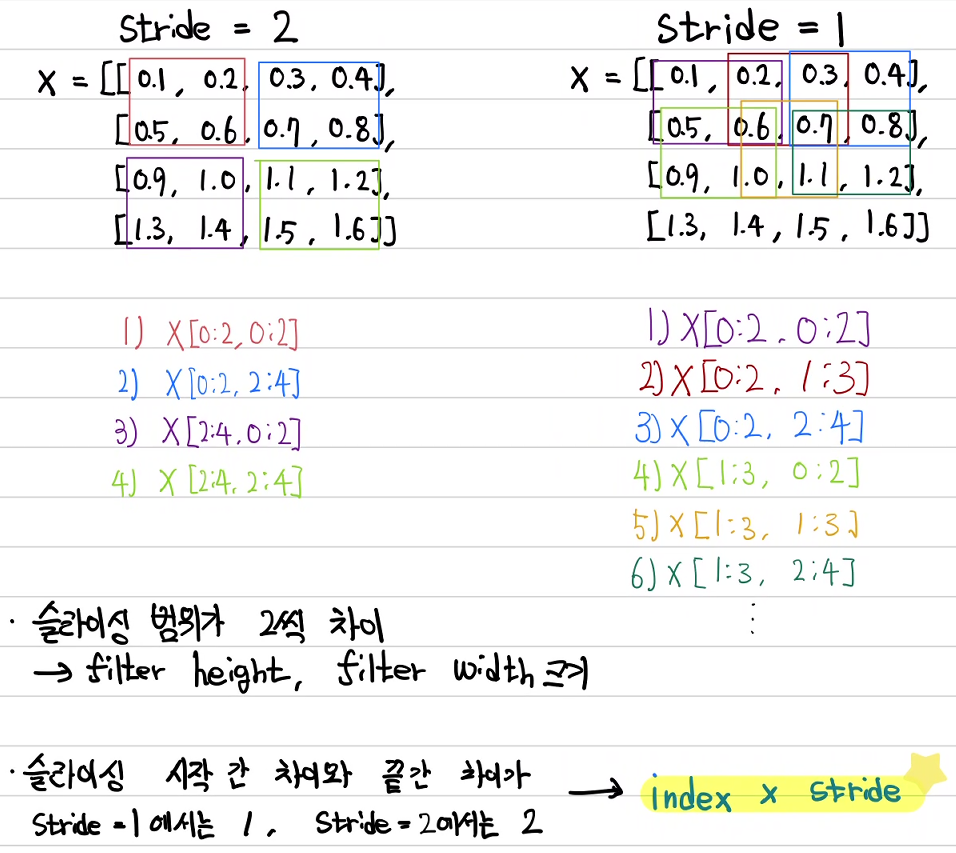 Stride = 2
X = [[0.1, 0.2, 0.3, 0.4],
[0.5, 0.6, 0.7, 0.8],
[0.9, 1.0, 1.1, 1.2],
[1.3, 1.4, 1.5, 1.6]]
1) X[0:2, 0:2]
2) X[0:2, 2:4]
3) X[2:4, 0:2]
4) X[2:4, 2:4]
Stride = 1
X = [[0.1, 0.2, 0.3, 0.4],
[0.5, 0.6, 0.7, 0.8],
[0.9, 1.0, 1.1, 1.2],
[1.3, 1.4, 1.5, 1.6]]
1) X[0:2, 0:2]
2) X[0:2, 1:3]
3) X[0:2, 2:4]
4) X[1:3, 0:2]
5) X[1:3, 1:3]
6) X[1:3, 2:4]
⋮
· 슬라이싱 범위가 2씩 차이
→ filter height, filter width 크기
· 슬라이싱 시작 간 차이와 끝간 차이가 → index x stride
Stride = 1 에서는 1, Stride = 2에서는 2